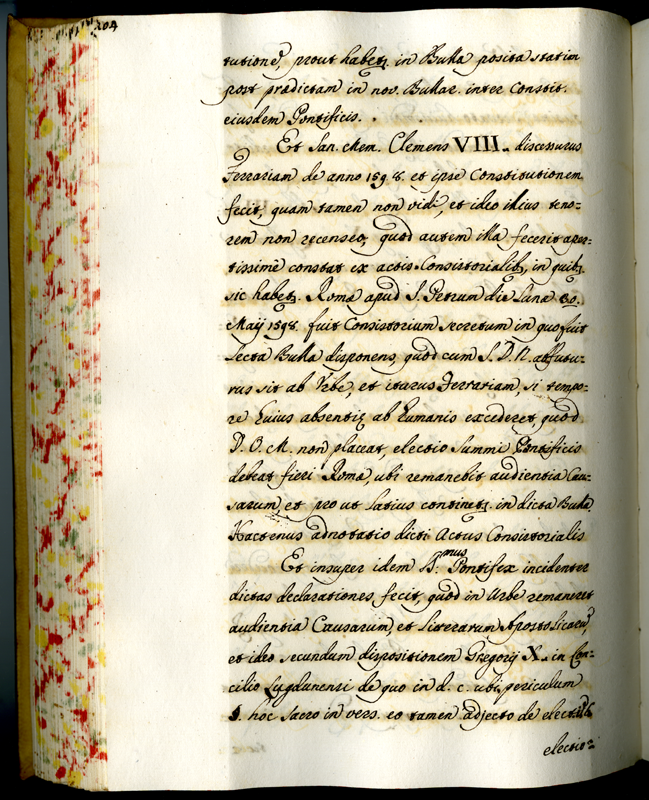 204
tutione, prout habetʒ in Bulla posita statim
post prædictam in nov. Bullar. inter Constit.
eiusdem Pontificis.
Et San. Mem. Clemens VIII. discessurus
Ferrariam de anno 1598. et ipse Constitutionem
fecit, quam tamen non vidi, et ideo illius teno=
rem non recenseo, quod autem illa fecerit aper=
tissimè constat ex actis Consistorialibʒ, in quibʒ
sic habetʒ. Romæ apud S. Petrum die Lunæ
Maij 1598. fuit Consistorium secretum in quo fuit
lecta Bulla disponens, quod cum S. D. N. abfutu=
rus sit ab Urbe, et iturus Ferrariam, si tempo=
re huius absentiæ ab humanis excederet, quod
D. O. M. non placeat, electio Summi Pontificis
debeat fieri Romæ ubi remanebit audientia Cau=
sarum, et prout latius continetʒ in dicta Bulla
Hactenus adnotatio dicti Actus Consistorialis
Et insuper idem B.mus Pontifex incidenter
dictas declarationes fecit, quod in Urbe remaneret
audientia Causarum, et Literarum Apostolicarũ,
et ideo secundum dispositionem Gregorij X. in Con=
cilio Lugdunensi de quo in d. c. ubi periculum
§. hoc sacro in vers. eo tamen adjecto de elect. in 6
electio=